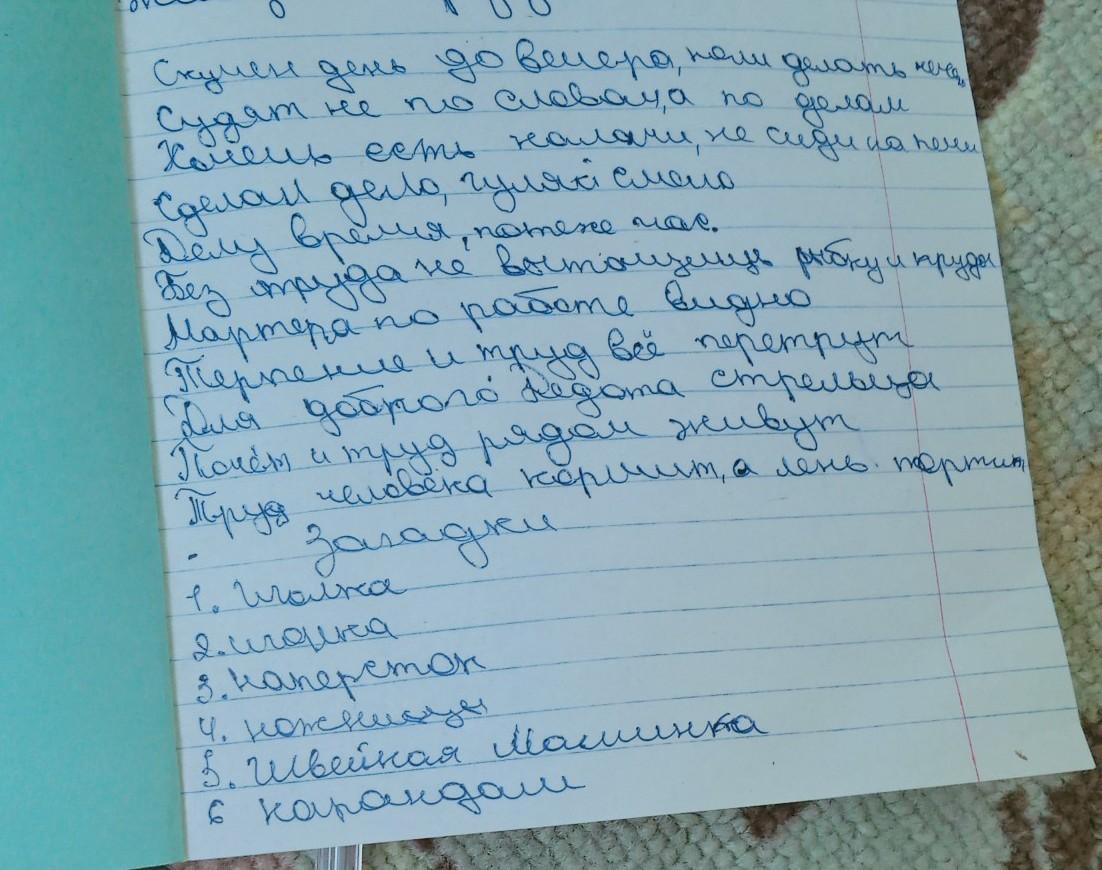 Скучен день до вечера, коли делать нечего
Судят не по словам, а по делам
Хочешь есть калачи, не сиди на печи
Сделал дело, гуляй смело
Делу время, потехе час.
Без труда не вытащишь рыбку и пруда
Мартера по работе видно
Терпение и труд всё перетрут
Для доброго Федота стрельца
Почёт и труд рядом живут
Труд человека кормит, а лень портит
Загадки
1. Иголка
2.
3. наперсток
4. ножницы
5. Швейная Машинка
6 карандаш